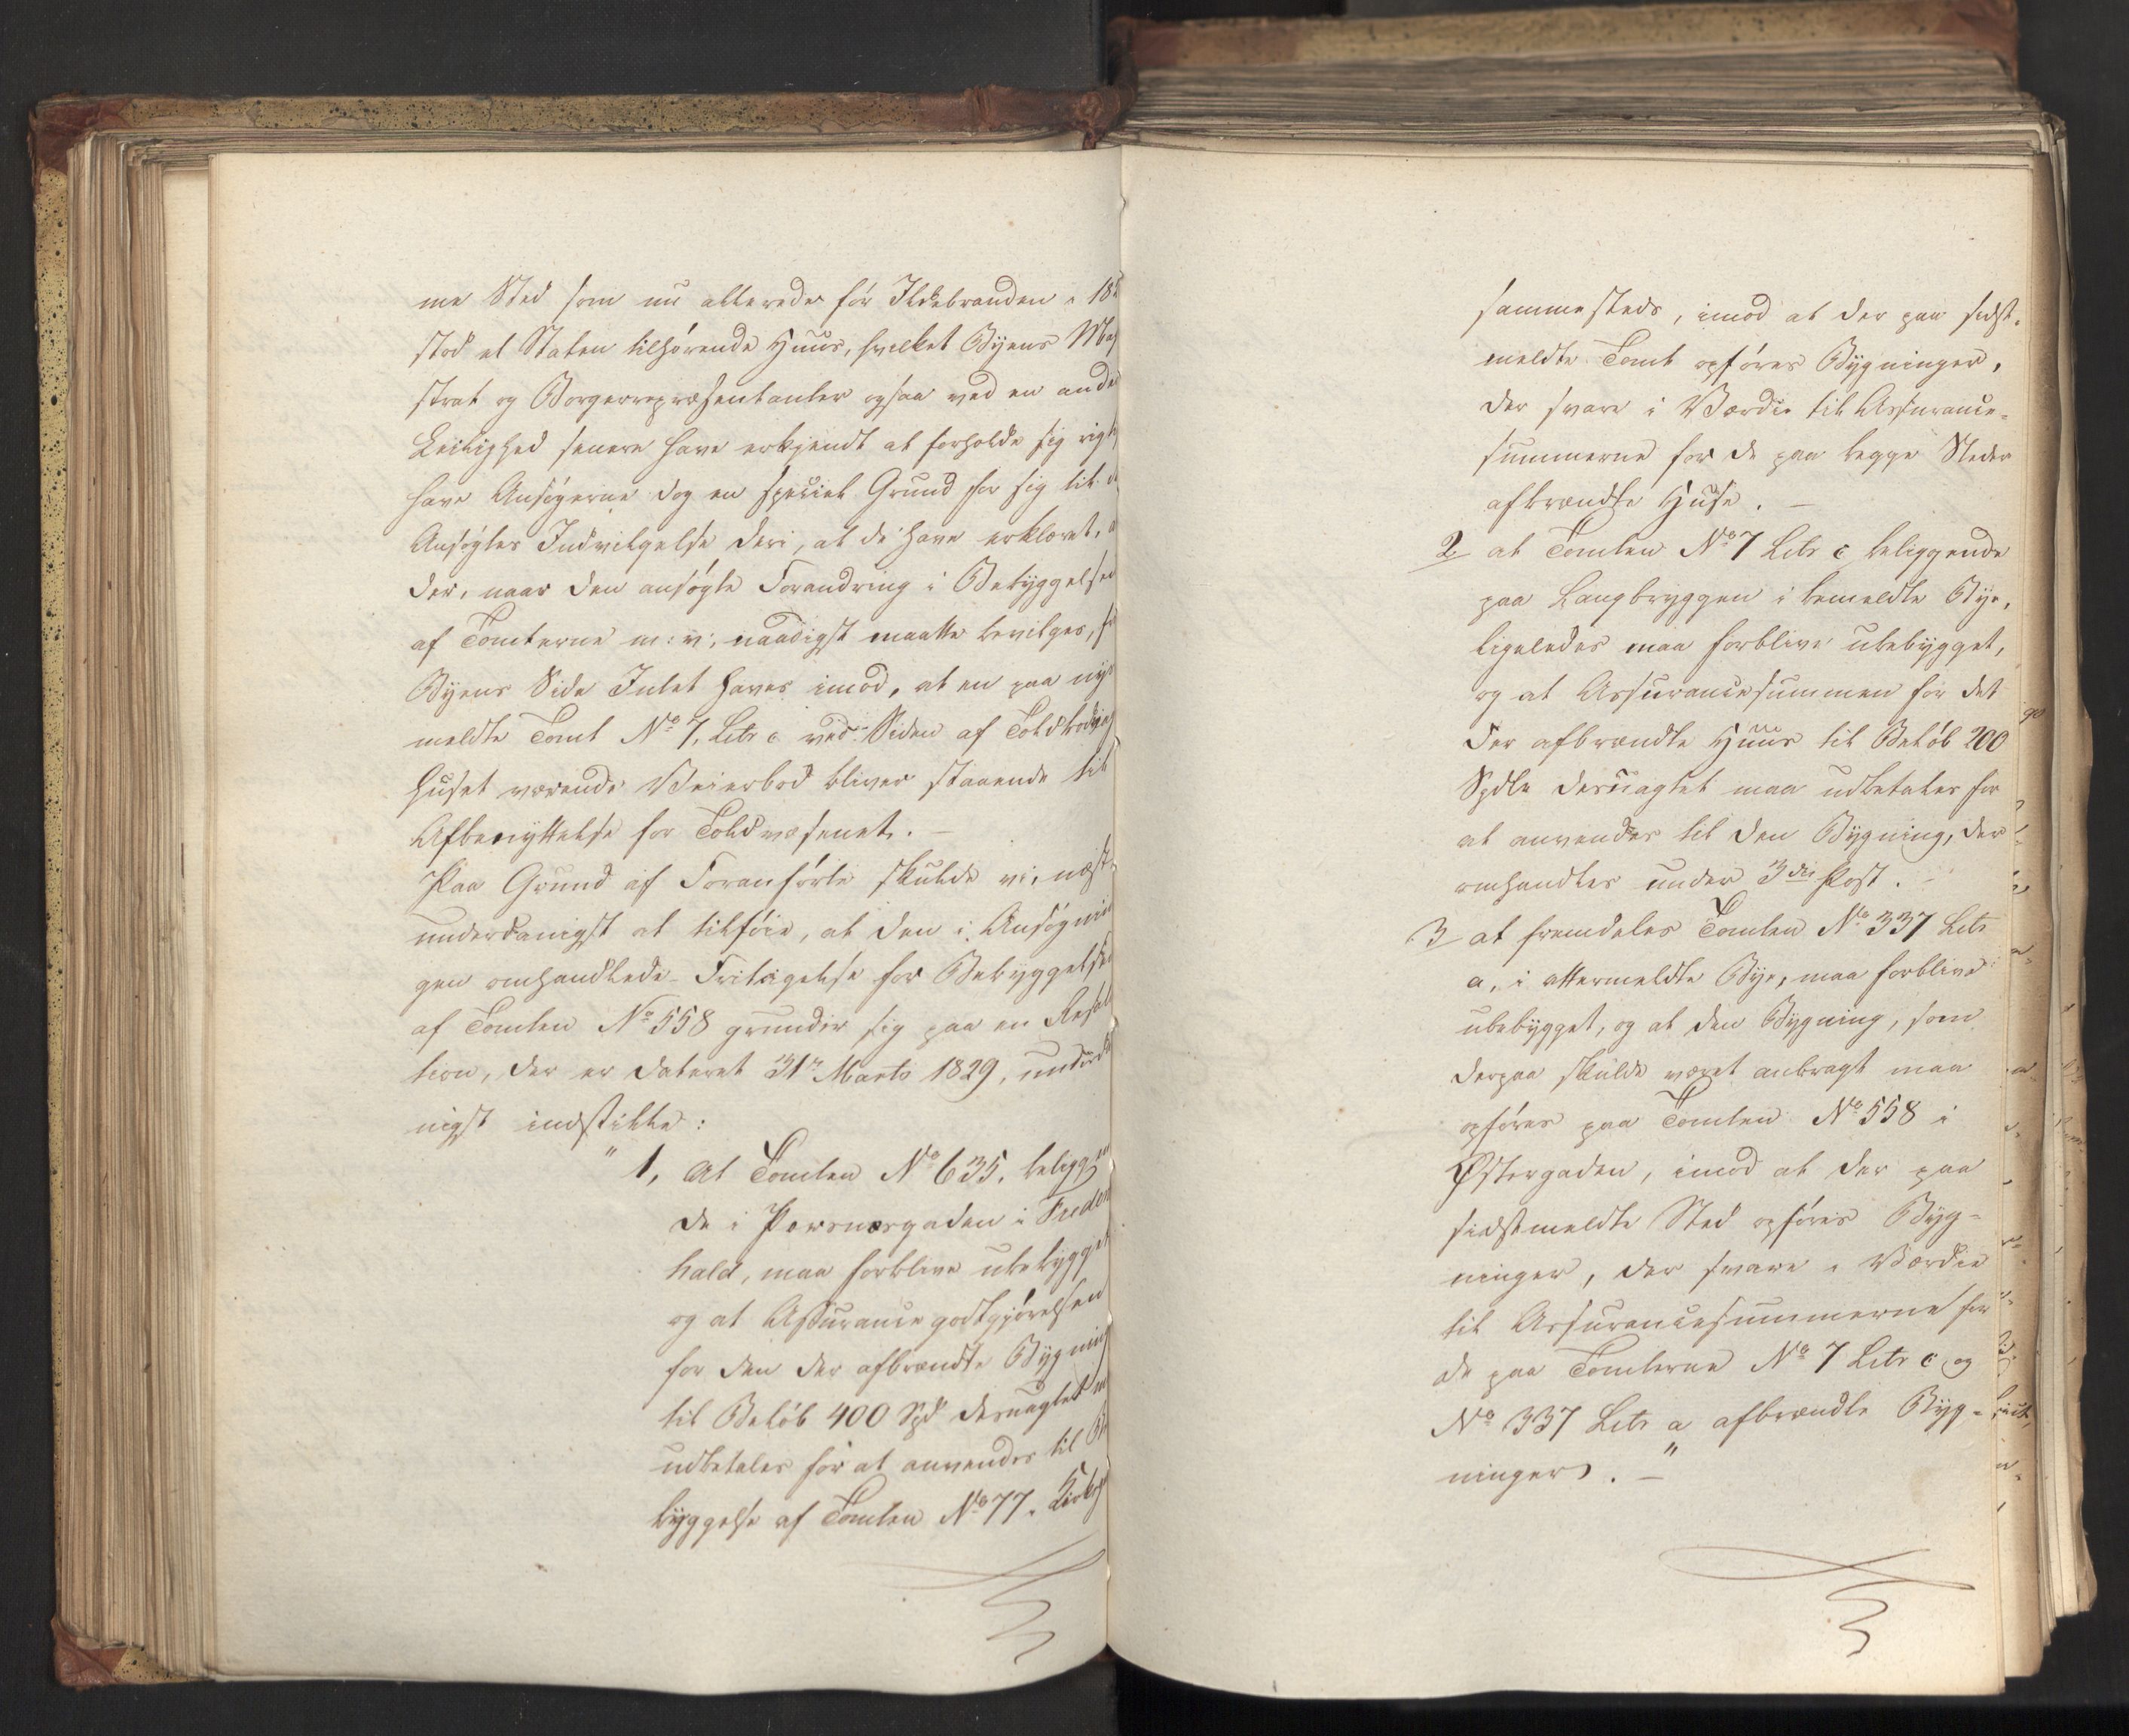 me Sted som nu allerede før Ildebranden i 18
stod et Staten tilhørende Huus, hvilket Byens Mag
strat og Borgerrepræsentanter ogsaa ved en ande
Leilighed senere have erkjendt at forholde sig rigt
have Ansøgerne dog en speciel Grund for sig til d
Ansøgtes Indvilgelse deri, at de have erklæret, a
der, naar den ansøgte Forandring i Bebyggelsen
af Tomterne m: v:, naadigst maatte bevilges, f
Byens Side Intet haves imod, at en paa nys
meldte Tomt No 7, Litr c ved Siden af Toldbod
huset værende Veierbod bliver staaende til
Afbenyttelse for Toldvæsenet. –
Paa Grund af Foranførte skulde vi, næst
underdanigst at tilføie, at den i Ansøgnin
gen omhandlede Fritagelse for Bebyggelsen
af Tomten No 558 grunder sig paa en Resol
tion, der er dateret 31te Marts 1829, underda
nigst indstille:
" 1, At Tomten No 635, beliggen
de i Porsnæsgaden i Freder
hald, maa forblive ubebygget
og at Assurancegodtgjørelsen
for den der afbrændte Bygning
til Beløb 400 Spd desuagtet m
udbetales for at anvendes til Be
byggelse af Tomten No 77.
sammesteds, imod at der paa sidst-
meldte Tomt opføres Bygninger,
der svare i Værdie til Assurance-
summerne for de paa begge Steder
afbrændte Huse. –
2 at Tomten No 7 Litr c beliggende
paa Langbryggen i bemeldte Bye,
ligeledes maa forblive ubebygget,
og at Assurancesummen for det
der afbrændte Huus til Beløb 200
Spdlr desuagtet maa udbetales for
at anvendes til den Bygning, der
omhandles under 3die Post. –
3 at fremdeles Tomten No 337 Litr
a, i oftermeldte Bye, maa forblive
ubebygget, og at den Bygning, som
derpaa skulde været anbragt maa
opføres paa Tomten No 558 i
Østergaden, imod at der paa
sidstmeldte Sted opføres Byg-
ninger, der svare i Værdie
til Assurancesummerne for
de paa Tomterne No 7 Litr c og
No 337 Litr a afbrændte Byg-
ninger. – "